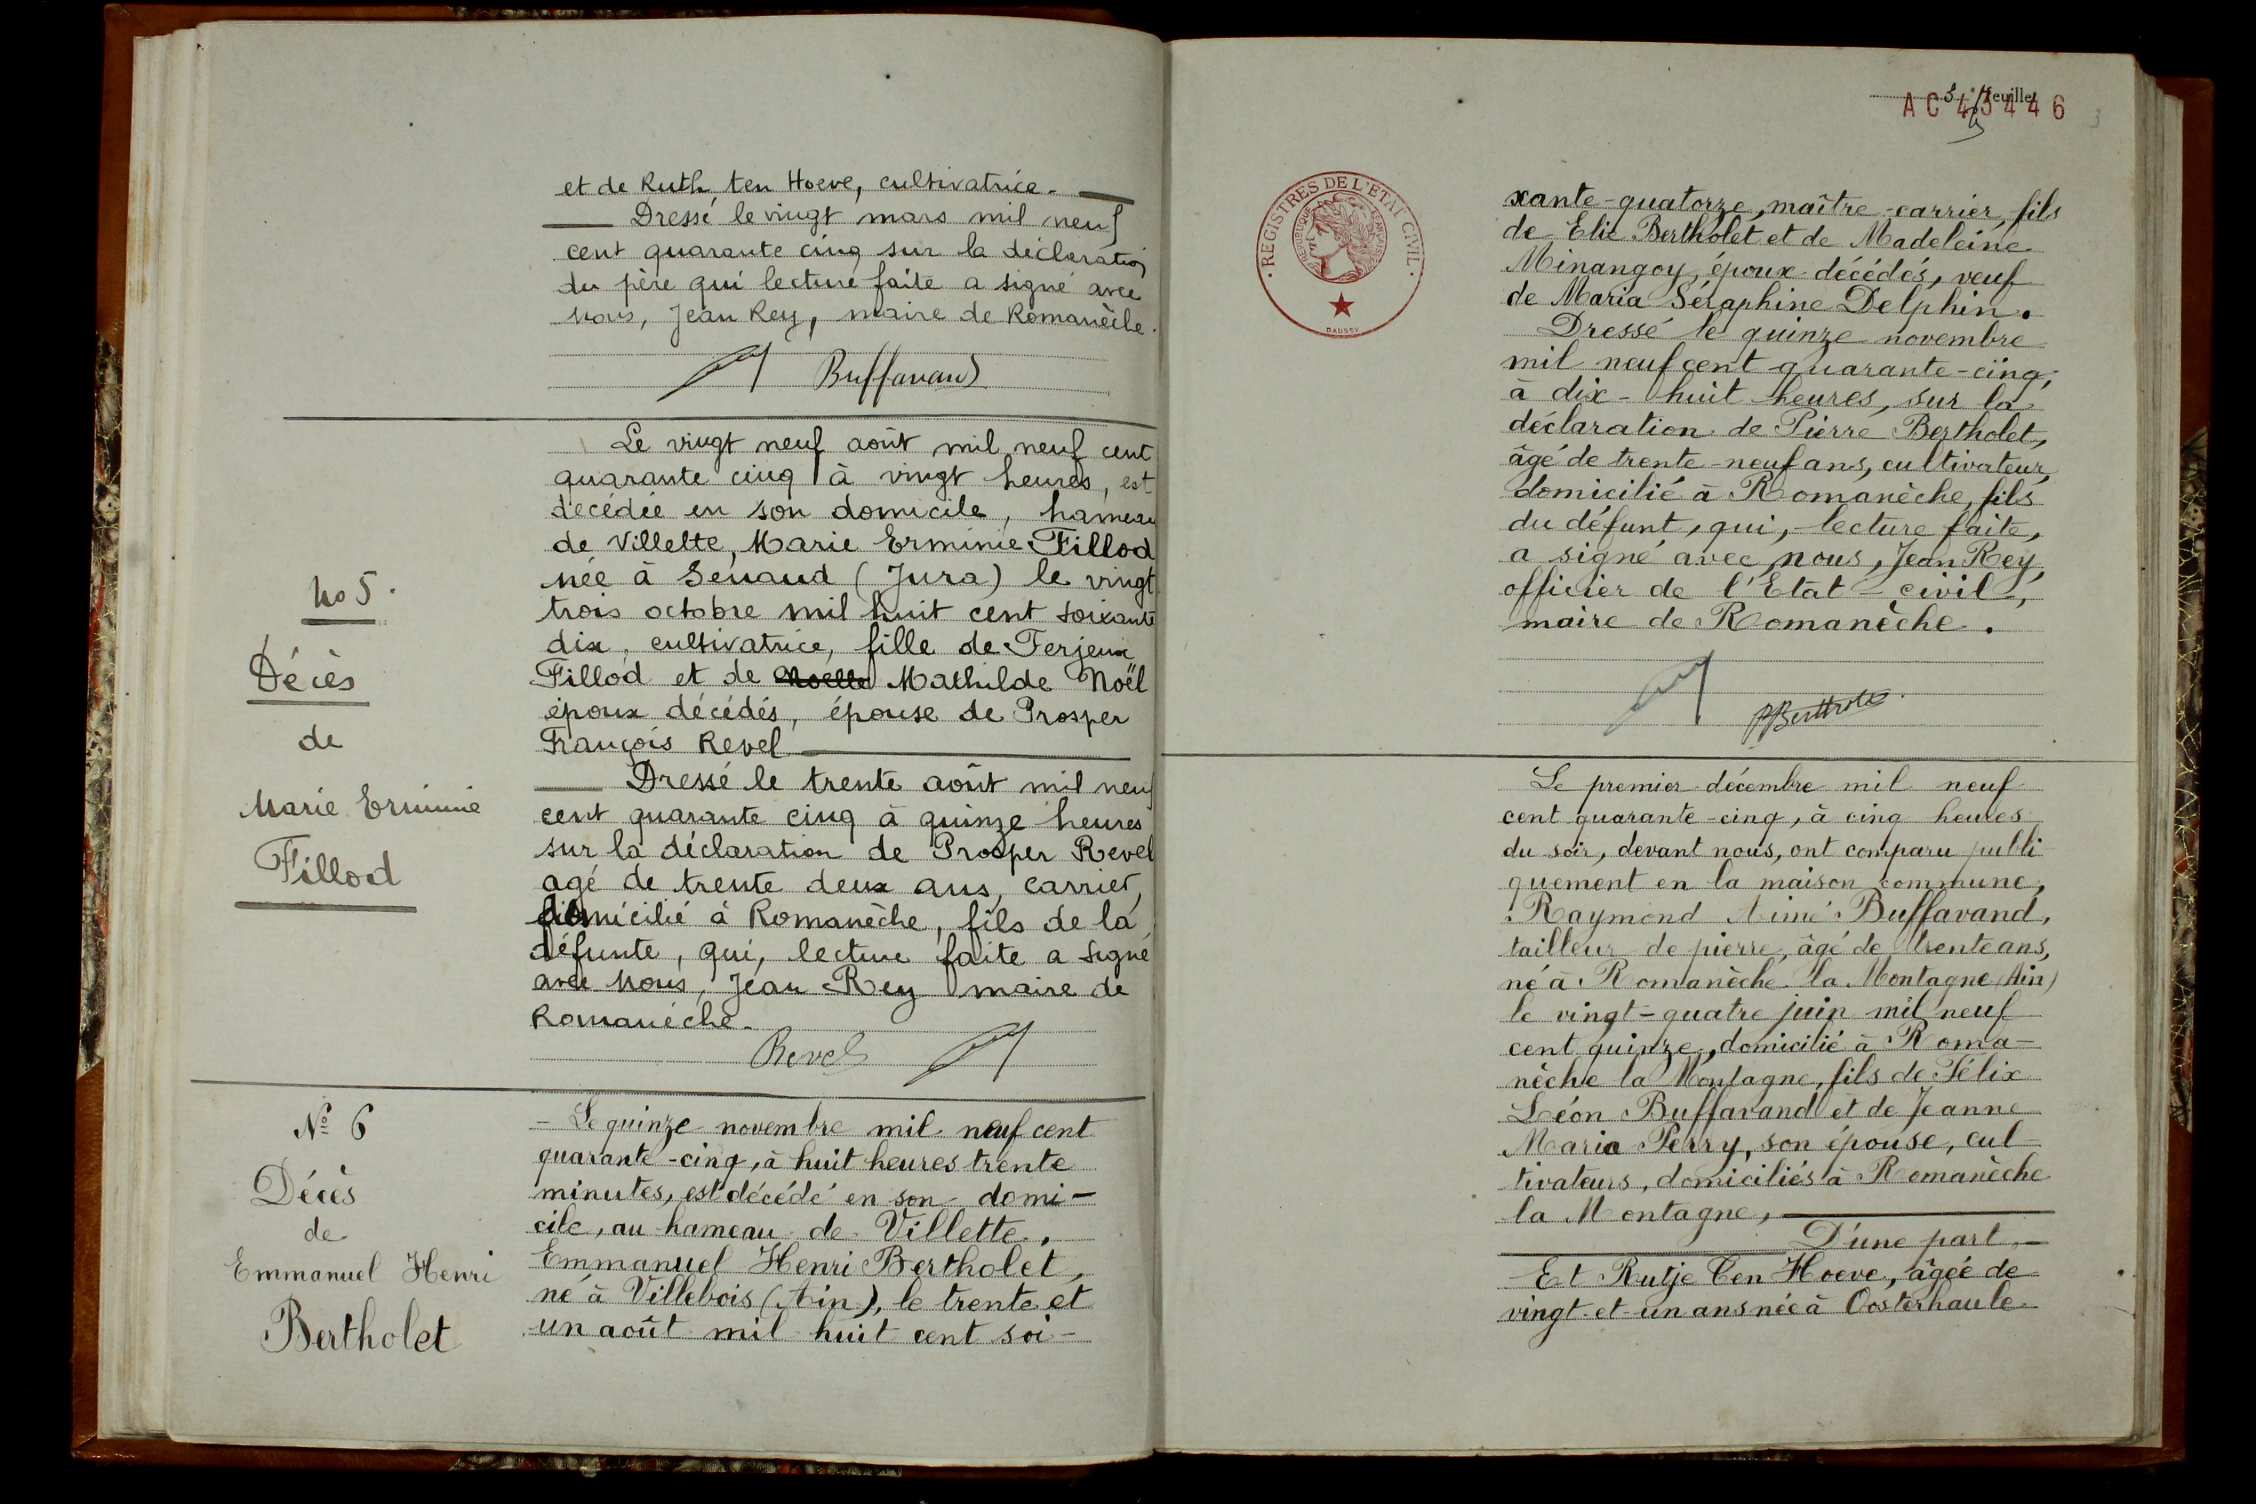 et de Ruth ten Hoeve, cultivatrice.
Dressé le vingt mars mil neuf
cent quarante cinq sur la déclaration
du père qui lecture faite a signé avec
Nous, Jean Rey, maire de Romanèche.
Buffavand
No 5.
Décès
de
Marie Erminie
Fillod
Le vingt neuf août mil neuf cent
quarante cinq à vingt heures, est
décédée en son domicile, hameau
de Villette, Marie Erminie Fillod
née à Senaud (Jura) le vingt
trois octobre mil huit cent soixante
dix, cultivatrice, fille de Ferjeux
Fillod et de Noëlle Mathilde Noël
époux décédés, épouse de Prosper
François Revel
Dressé le trente août mil neuf
cent quarante cinq à quinze heures
sur la déclaration de Prosper Revel
agé de trente deux ans, carrier,
domicilié à Romanèche, fils de la
défunte, qui, lecture faite a signé
avec Nous, Jean Rey maire de
Romanèche.
Revel
Nº 6
Décès
de
Emmanuel Henri
Bertholet
- Le quinze novembre mil neuf cent
quarante-cinq, à huit heures trente
minutes, est décédé en son domi-
cile, au hameau de Villette,
Emmanuel Henri Bertholet,
né à Villebois (Ain), le trente et
un août mil huit cent soi-
feuillet
AC 43446
3
REGISTRES DE L'ETAT CIVIL
REPUBLIQUE FRANÇAISE
DAUSSY
xante-quatorze, maître-carrier, fils
de Elie Bertholet et de Madeleine
Minangoy, époux décédés, veuf
de Maria Séraphine Delphin.
Dressé le quinze novembre
mil neuf cent quarante-cinq,
à dix-huit heures, sur la
déclaration de Pierre Bertholet,
âgé de trente-neuf ans, cultivateur,
domicilié à Romanèche, fils
du défunt, qui, lecture faite,
a signé avec nous, Jean Rey,
officier de l'Etat-civil,
maire de Romanèche.
PBertholet
Le premier décembre mil neuf
cent quarante-cinq, à cinq heures
du soir, devant nous, ont comparu publi
quement en la maison commune,
Raymond Aimé Buffavand,
tailleur de pierre, âgé de trente ans,
né à Romanèche la Montagne (Ain)
le vingt-quatre juin mil neuf
cent quinze, domicilié à Roma-
nèche la Montagne, fils de Félix
Léon Buffavand et de Jeanne
Maria Perry, son épouse, cul
tivateurs, domiciliés à Romanèche
la Montagne,
D'une part,
Et Rutje Ten Hoeve, âgée de
vingt-et-un ans née à Oosterhaule